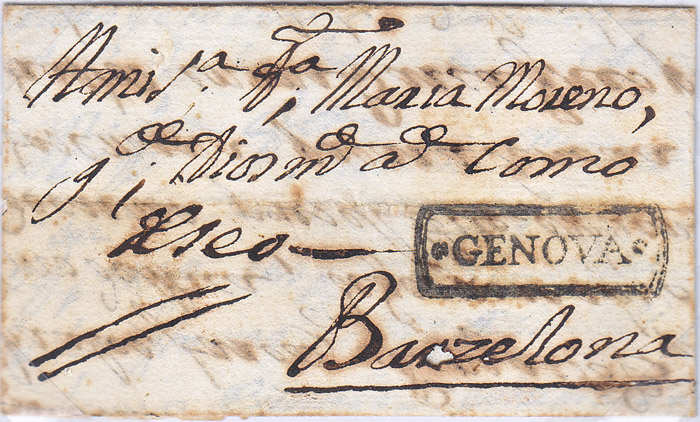 A mi S.ª D.ª Maria Moreno,
q.e Dios m.s a.s Como
deseo
GENOVA
Barzelona